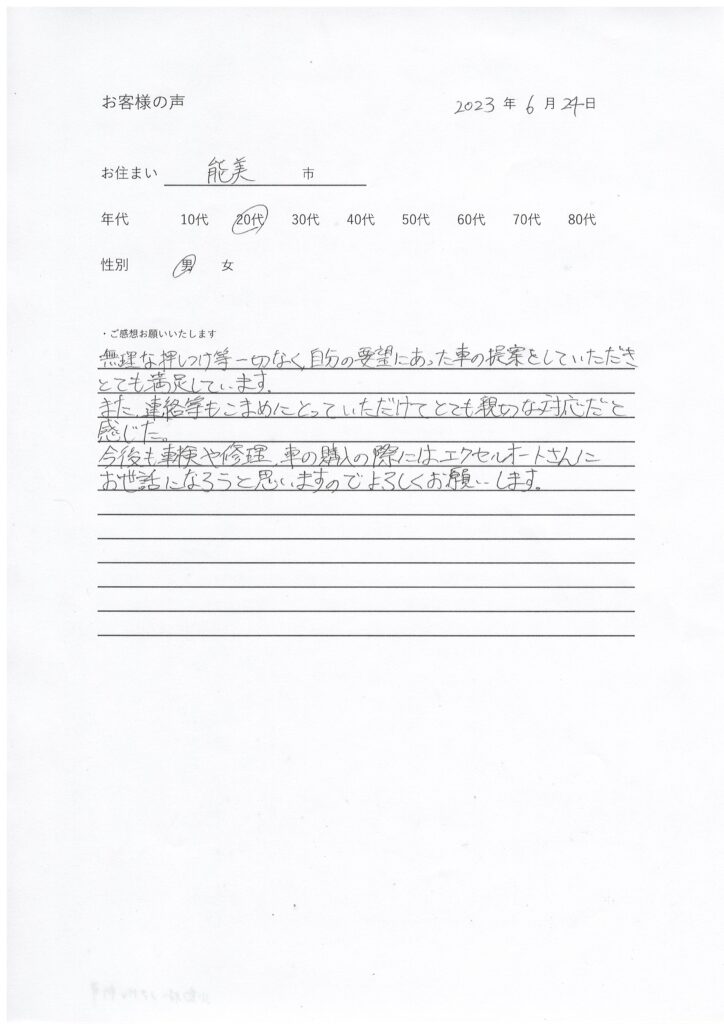 お客様の声
2023 年 6 月 24 日
お住まい 能美 市
年代 10代 20代 30代 40代 50代 60代 70代 80代
性別 男 女
・ご感想お願いいたします
無理な押しつけ等一切なく、自分の要望にあった車の提案をしていただき
とても満足しています。
また、連絡等もこまめにとっていただけてとても親切な対応だと
感じた。
今後も車検や修理、車の購入の際にはエクセルオートさんに
お世話になろうと思いますのでよろしくお願いします。